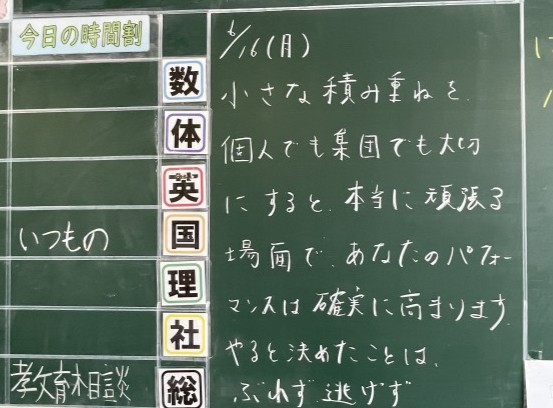 今日の時間割
数
体
英
いつもの 国
理
社
教育相談 総
6/16(月)
小さな積み重ねを
個人でも集団でも大切
にすると、本当に頑張る
場面で、あなたのパフォー
マンスは確実に高まります
やると決めたことは、
ぶれず逃げず